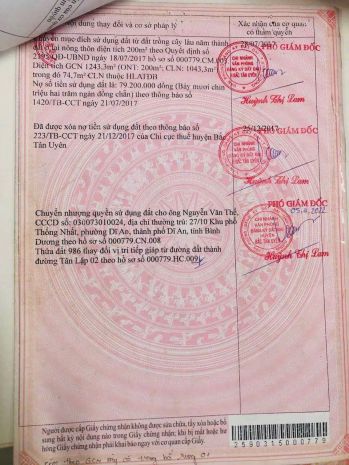 Nội dung thay đổi và cơ sở pháp lý
Xác nhận của cơ quan
có thẩm quyền
Chuyển mục đích sử dụng đất từ đất trồng cây lâu năm thành
đất ở tại nông thôn diện tích 200m² theo Quyết định số
/QĐ-UBND ngày 18/07/2017 hồ sơ 000779.CM.00
Diện tích GCN 1243,3m² (ONT: 200m²; CLN: 1043,3m²
trong đó 74,7m² CLN thuộc HLATĐB
Nợ số tiền sử dụng đất là: 79.200.000 đồng (Bảy mươi chín
triệu hai trăm ngàn đồng chẵn) theo thông báo số
1420/TB-CCT ngày 21/07/2017
PHÓ GIÁM ĐỐC
CHI NHÁNH
VĂN PHÒNG
ĐĂNG KÝ ĐẤT ĐAI
BẮC TÂN UYÊN
Huỳnh Thị Lam
Đã được xóa nợ tiền sử dụng đất theo thông báo số
223/TB-CCT ngày 21/12/2017 của Chi cục thuế huyện Bắc
Tân Uyên
/12/2017
PHÓ GIÁM ĐỐC
CHI NHÁNH
VĂN PHÒNG
ĐĂNG KÝ ĐẤT ĐAI
BẮC TÂN UYÊN
Huỳnh Thị Lam
Chuyển nhượng quyền sử dụng đất cho ông Nguyễn Văn Thế,
CCCD số: 030073010024, địa chỉ thường trú: 27/10 Khu phố
Thống Nhất, phường Dĩ An, thành phố Dĩ An, tỉnh Bình
Dương theo hồ sơ số 000779.CN.008
Thửa đất 986 thay đổi vị trí tiếp giáp từ đường đất thành
đường Tân Lập 02 theo hồ sơ số 000779.HC.009
PHÓ GIÁM ĐỐC
CHI NHÁNH
VĂN PHÒNG
ĐĂNG KÝ ĐẤT ĐAI
HUYỆN
BẮC TÂN UYÊN
Huỳnh Thị Lam
Người được cấp Giấy chứng nhận không được sửa chữa, tẩy xóa hoặc bổ
sung bất kỳ nội dung nào trong Giấy chứng nhận; khi bị mất hoặc hư
hỏng Giấy chứng nhận phải khai báo ngay với cơ quan cấp Giấy.
2590315000779